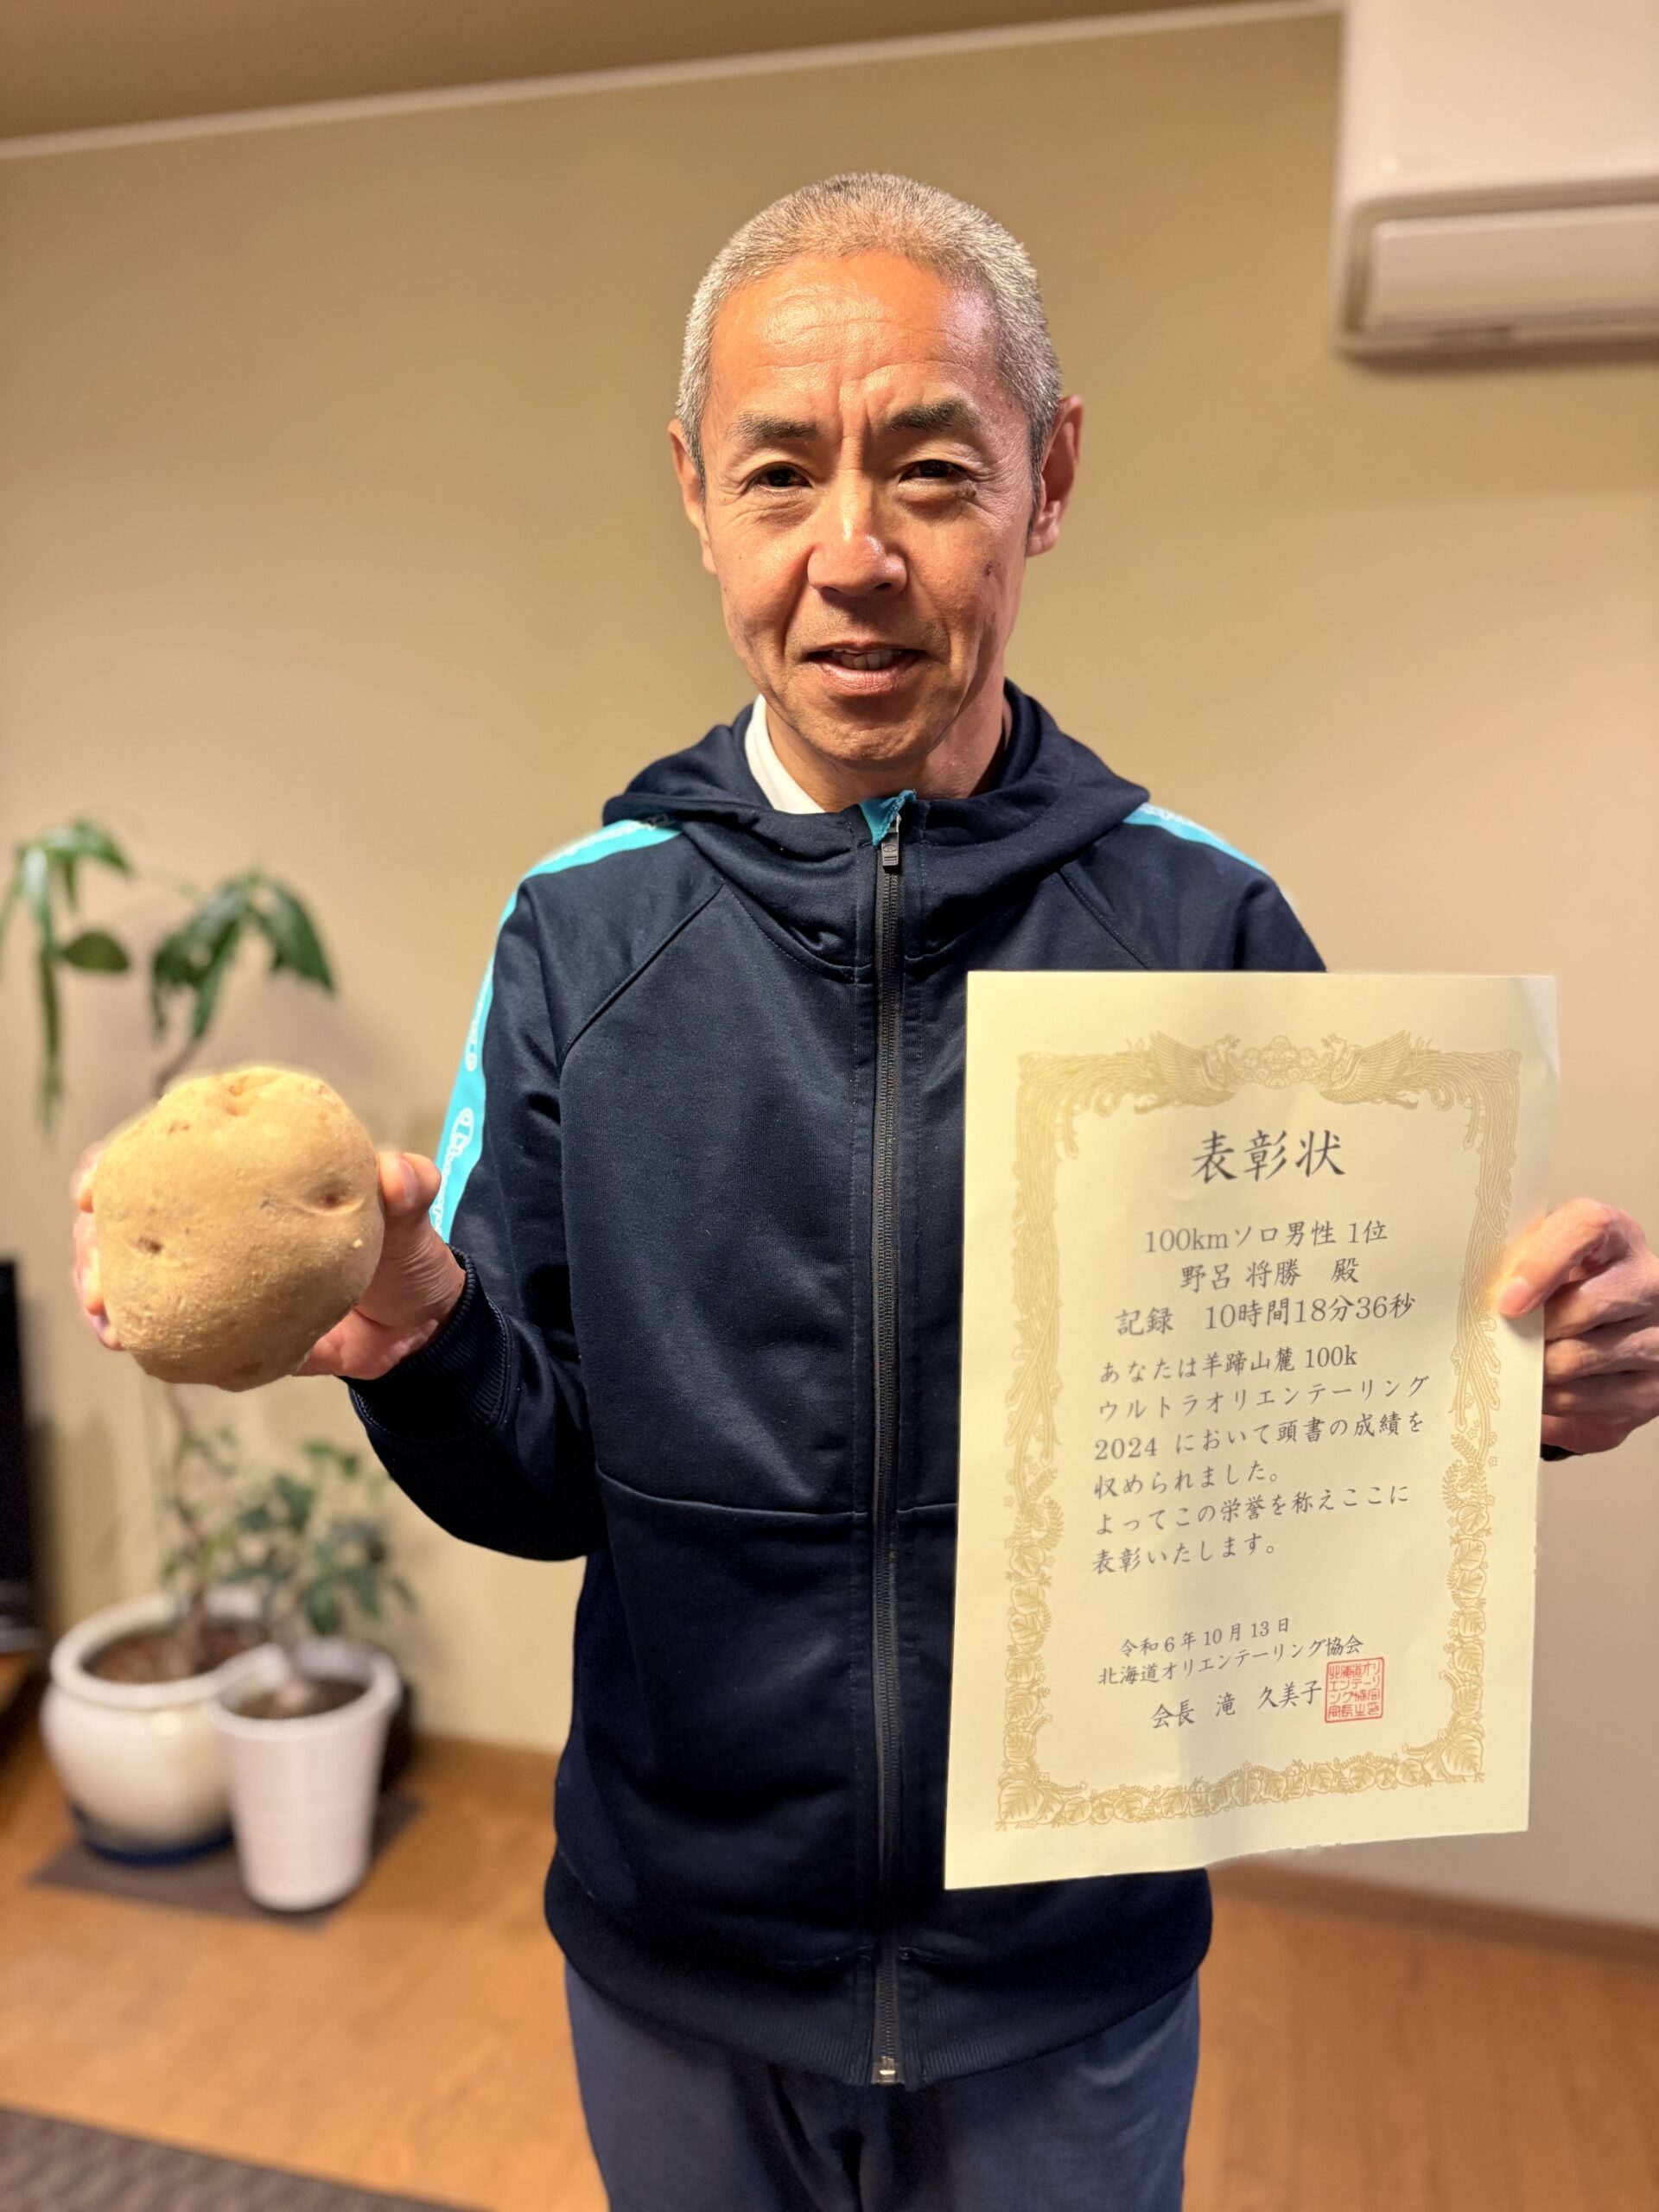 表彰状
100kmソロ男性 1位
野呂 将勝 殿
記録 10時間18分36秒
あなたは羊蹄山麓 100k
ウルトラオリエンテーリング
2024 において頭書の成績を
収められました。
よってこの栄誉を称えここに
表彰いたします。
令和6年10月13日
北海道オリエンテーリング協会
会長 滝 久美子